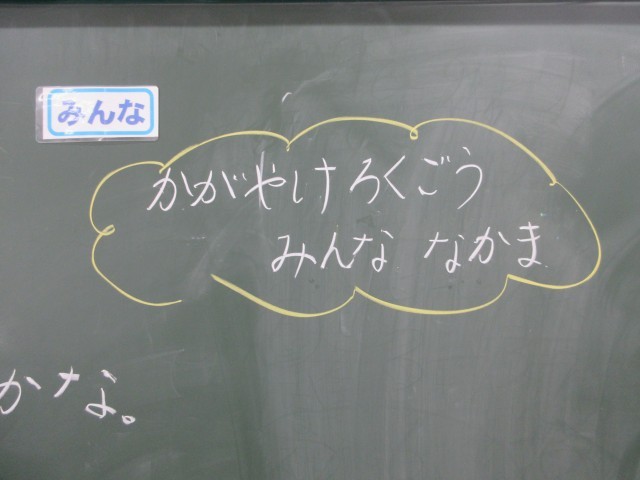 みんな
かがやけろくごう
みんな なかま
かな。